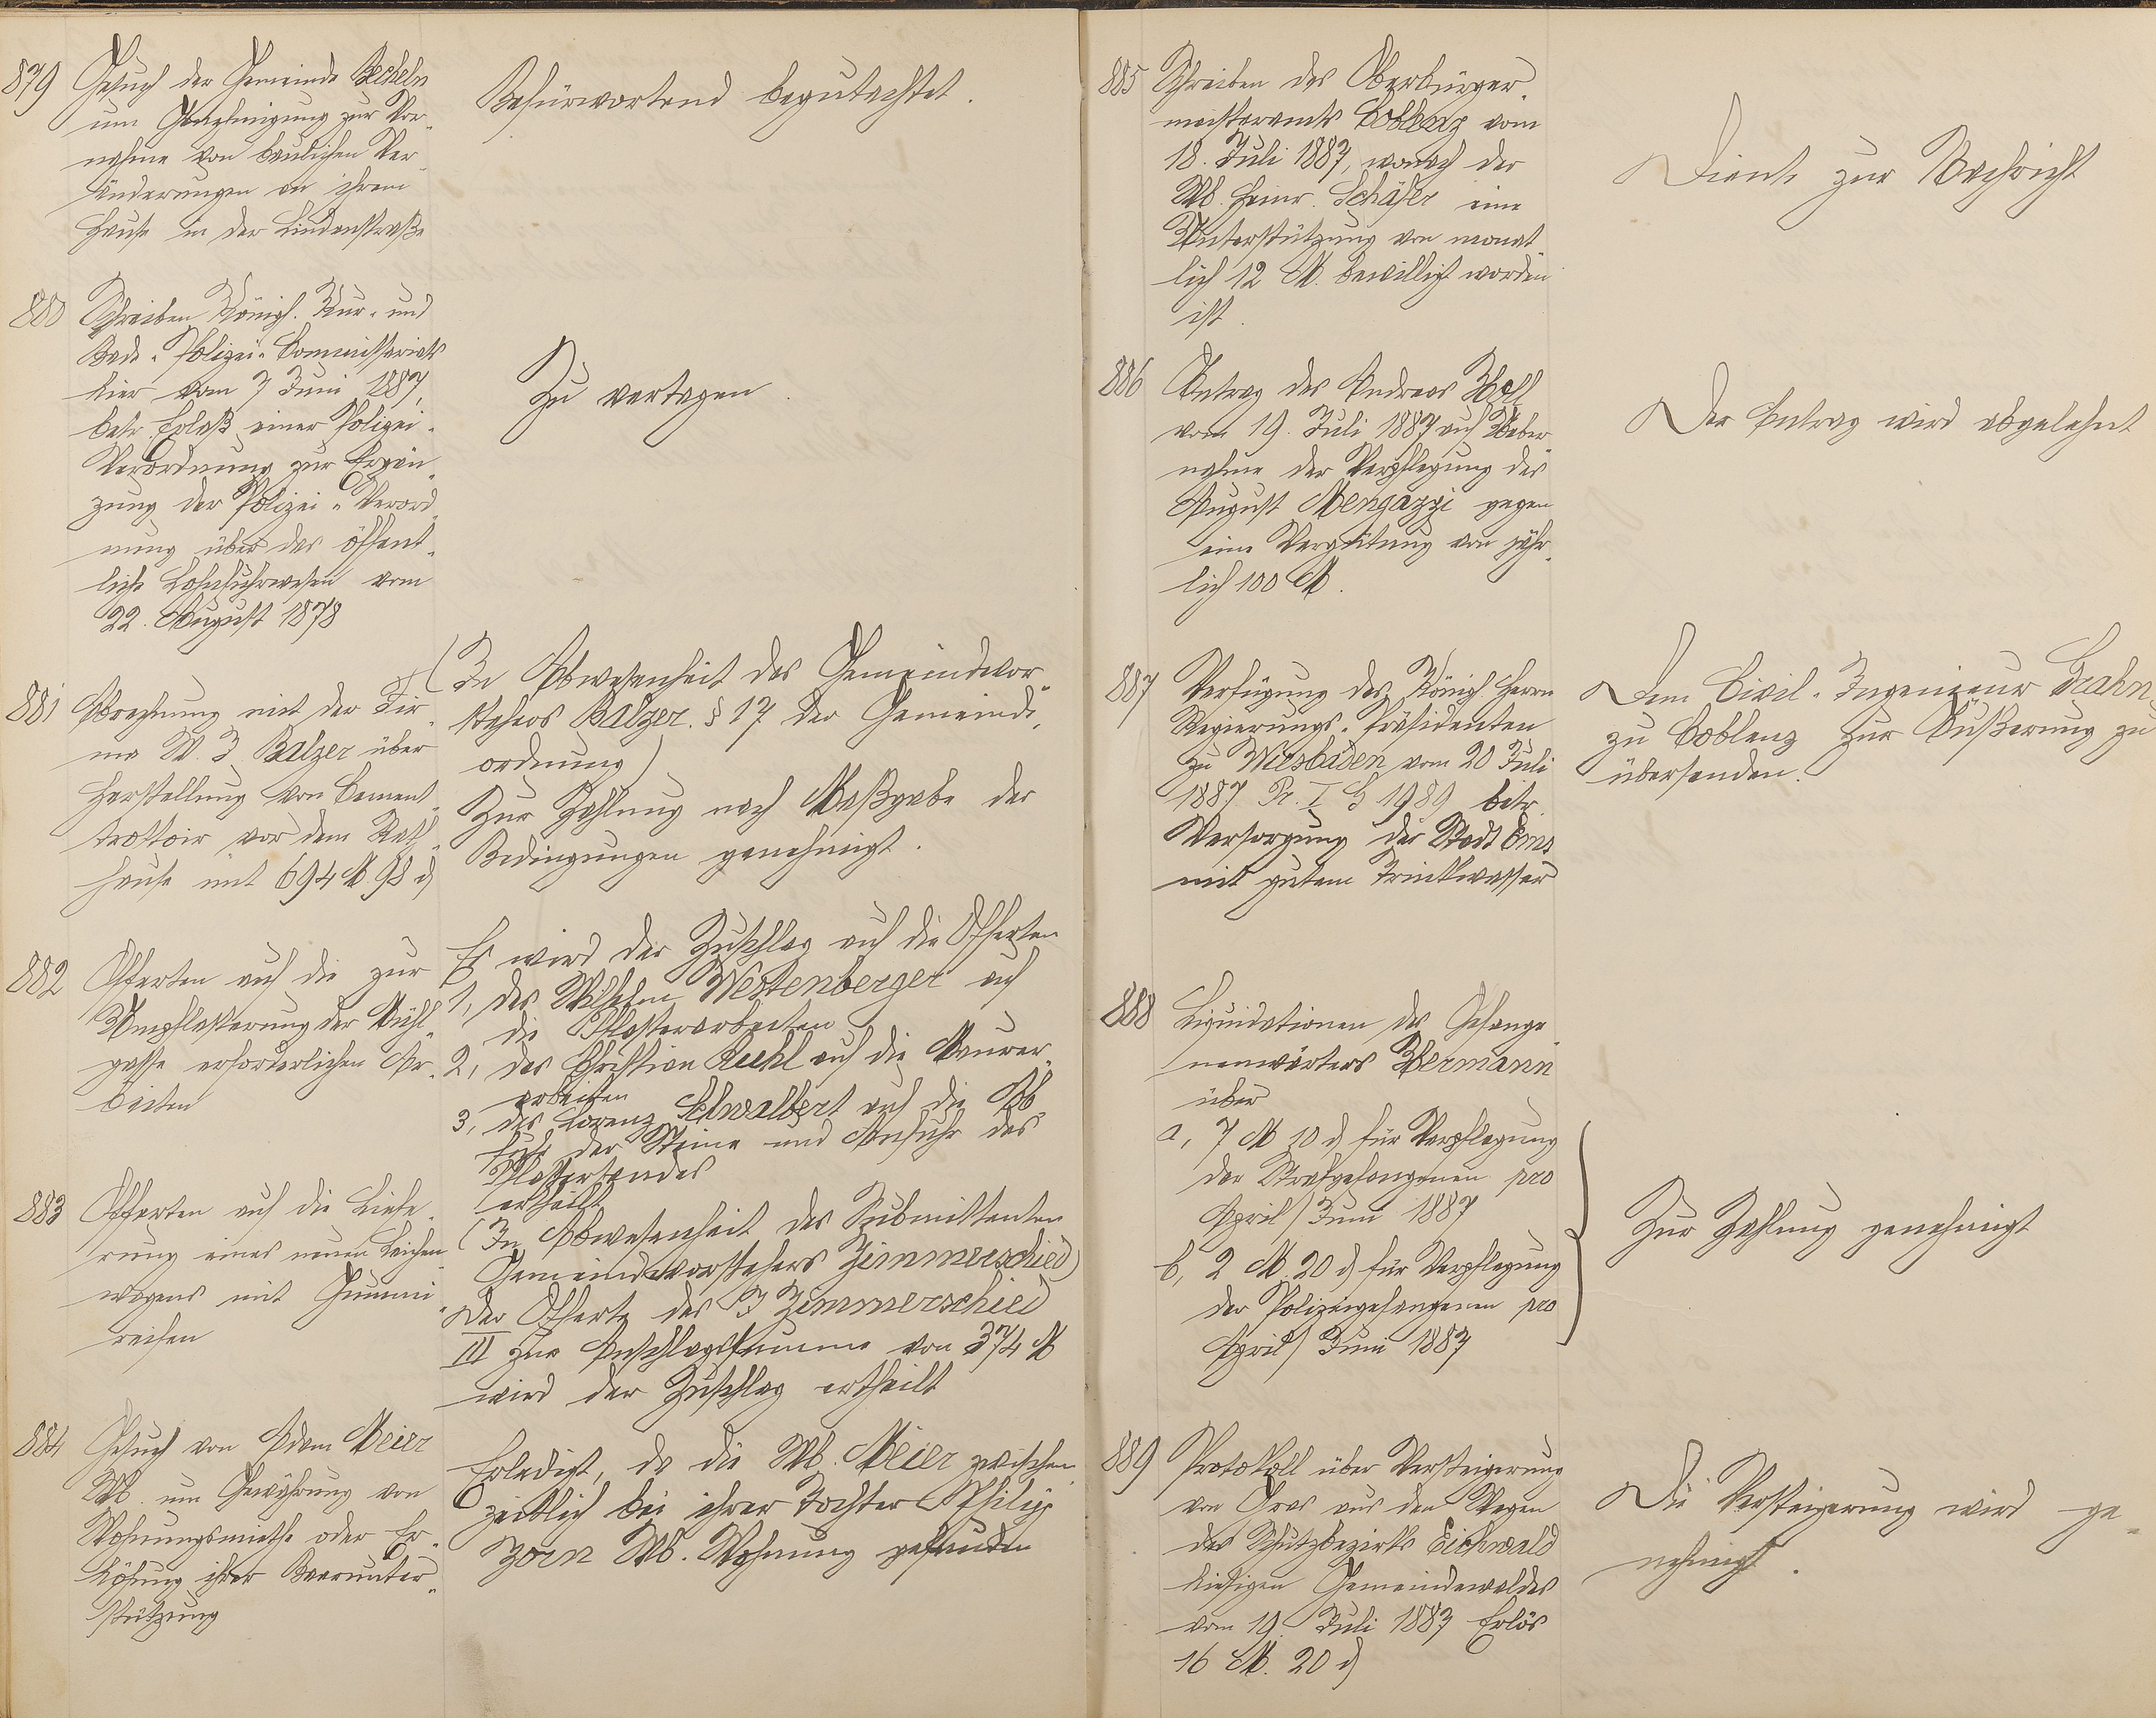 879 Gesuch der Gemeinde Becheln
um Genehmigung zur Vor-
nahme von baulichen Ver-
änderungen an ihrem
Hause in der Lindenstraße
Befürwortend begutachtet.
880 Schreiben Königl. Kur- und
Bade-Polizei-Commissariats
hier vom 7 Juni 1887,
betr. Erlaß einer Polizei-
Verordnung zur Ergän-
zung der Polizei-Verord-
nung über das öffent-
liche Lohnfuhrwesen vom
22. August 1878
Zu vertagen.
881 Abrechnung mit der Fir-
ma W. J. Balzer über
Herstellung von Cement-
trottoir vor dem Rath-
hause mit 694 M 98 d
(In Abwesenheit des Gemeindevor-
stehers Balzer. § 17 der Gemeinde-
ordnung)
Zur Zahlung nach Maßgabe der
Bedingungen genehmigt.
882 Offerten auf die zur
Umpflasterung der Mühl-
gasse erforderlichen Ar-
beiten
Es wird der Zuschlag auf die Offerten
1, des Wilhelm Westenberger auf
die Pflasterarbeiten
2, des Christian Ruehl auf die Maurer-
arbeiten
3, des Lorenz Schwalbert auf die Ab-
fuhr der Steine und Anfuhr des
Pflastersandes
ertheilt
883 Offerten auf die Liefe-
rung eines neuen Leichen-
wagens mit Gummi-
reifen
(In Abwesenheit des Submittenten
Gemeindevorstehers Zimmerschied)
Der Offerte des J Zimmerschied
III zur Anschlagssumme von 374 M
wird der Zuschlag ertheilt
884 Gesuch von Adam Meier
Wb. um Gewährung von
Wohnungsmiethe oder Er-
höhung ihrer Armunter-
stützung
Erledigt, da die Wb. Meier zwischen-
zeitlich bei ihrer Tochter Philipp
Zorn Wb. Wohnung gefunden
885 Schreiben des Oberbürger-
meisteramts Coblenz vom
18. Juli 1887, wonach der
Wb. Heinr. Schäfer eine
Unterstützung von monat-
lich 12 M. bewilligt worden
ist.
Dient zur Nachricht
886 Antrag des Andreas Holl
vom 19. Juli 1887 auf Ueber-
nahme der Verpflegung des
August Mengazzi gegen
eine Vergütung von jähr-
lich 100 M.
Der Antrag wird abgelehnt
887 Verfügung des Königl Herrn
Regierungs-Präsidenten
zu Wiesbaden vom 20 Juli
1887 Pr. I G 1989 betr.
Versorgung der Stadt Ems
mit gutem Trinkwasser
Dem Civil-Ingenieur Grahn
zu Coblenz zur Äußerung zu
übersenden.
888 Liquidationen des Gefange-
nenwärters Hermann
über
a, 7 M 10 d für Verpflegung
der Strafgefangenen pro
April/Juni 1887
b, 2 M. 20 d für Verpflegung
der Polizeigefangenen pro
April/Juni 1887
Zur Zahlung genehmigt
889 Protokoll über Versteigerung
von Gras aus den Wegen
des Schutzbezirks Eichwald
hiesigen Gemeindewaldes
vom 19. Juli 1887 Erlös
16 M. 20 d
Die Versteigerung wird ge-
nehmigt.